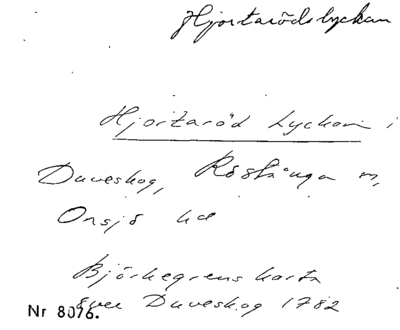 Hjortarödslyckan
Hjortaröd Lyckan i
Duveskog, Röstånga sn,
Onsjö hd
Björkegrens karta
över Duveskog 1782
Nr 8076.